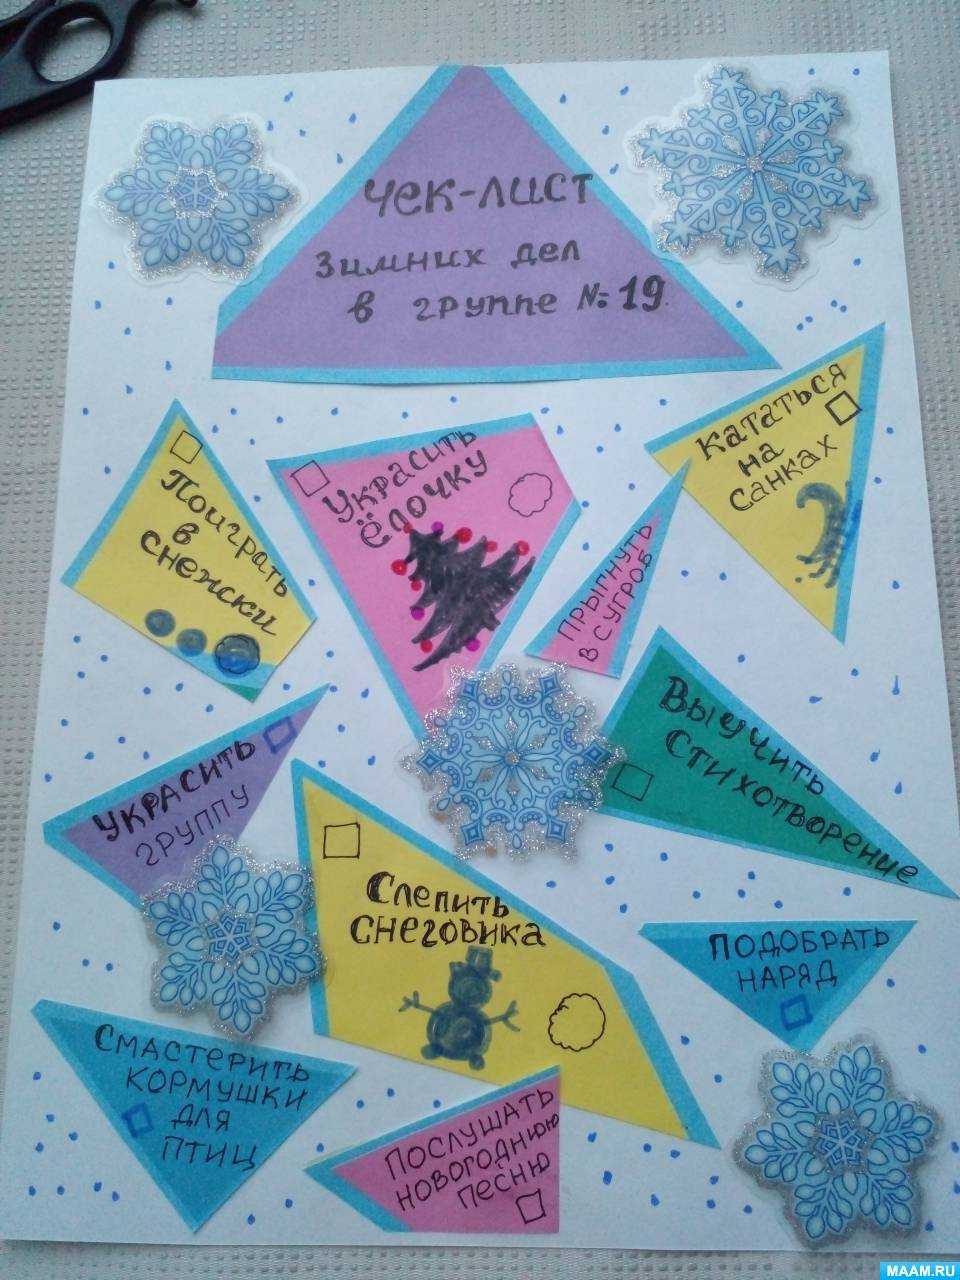 Чек-лист
Зимних дел
в группе №19
Кататься
на
санках
Украсить
ёлочку
Поиграть
в
снежки
Прыгнуть
в сугроб
Выучить
стихотворение
Украсить
группу
Слепить
снеговика
Подобрать
наряд
Смастерить
кормушки
для
птиц
Послушать
новогоднюю
песню
MAAM.RU